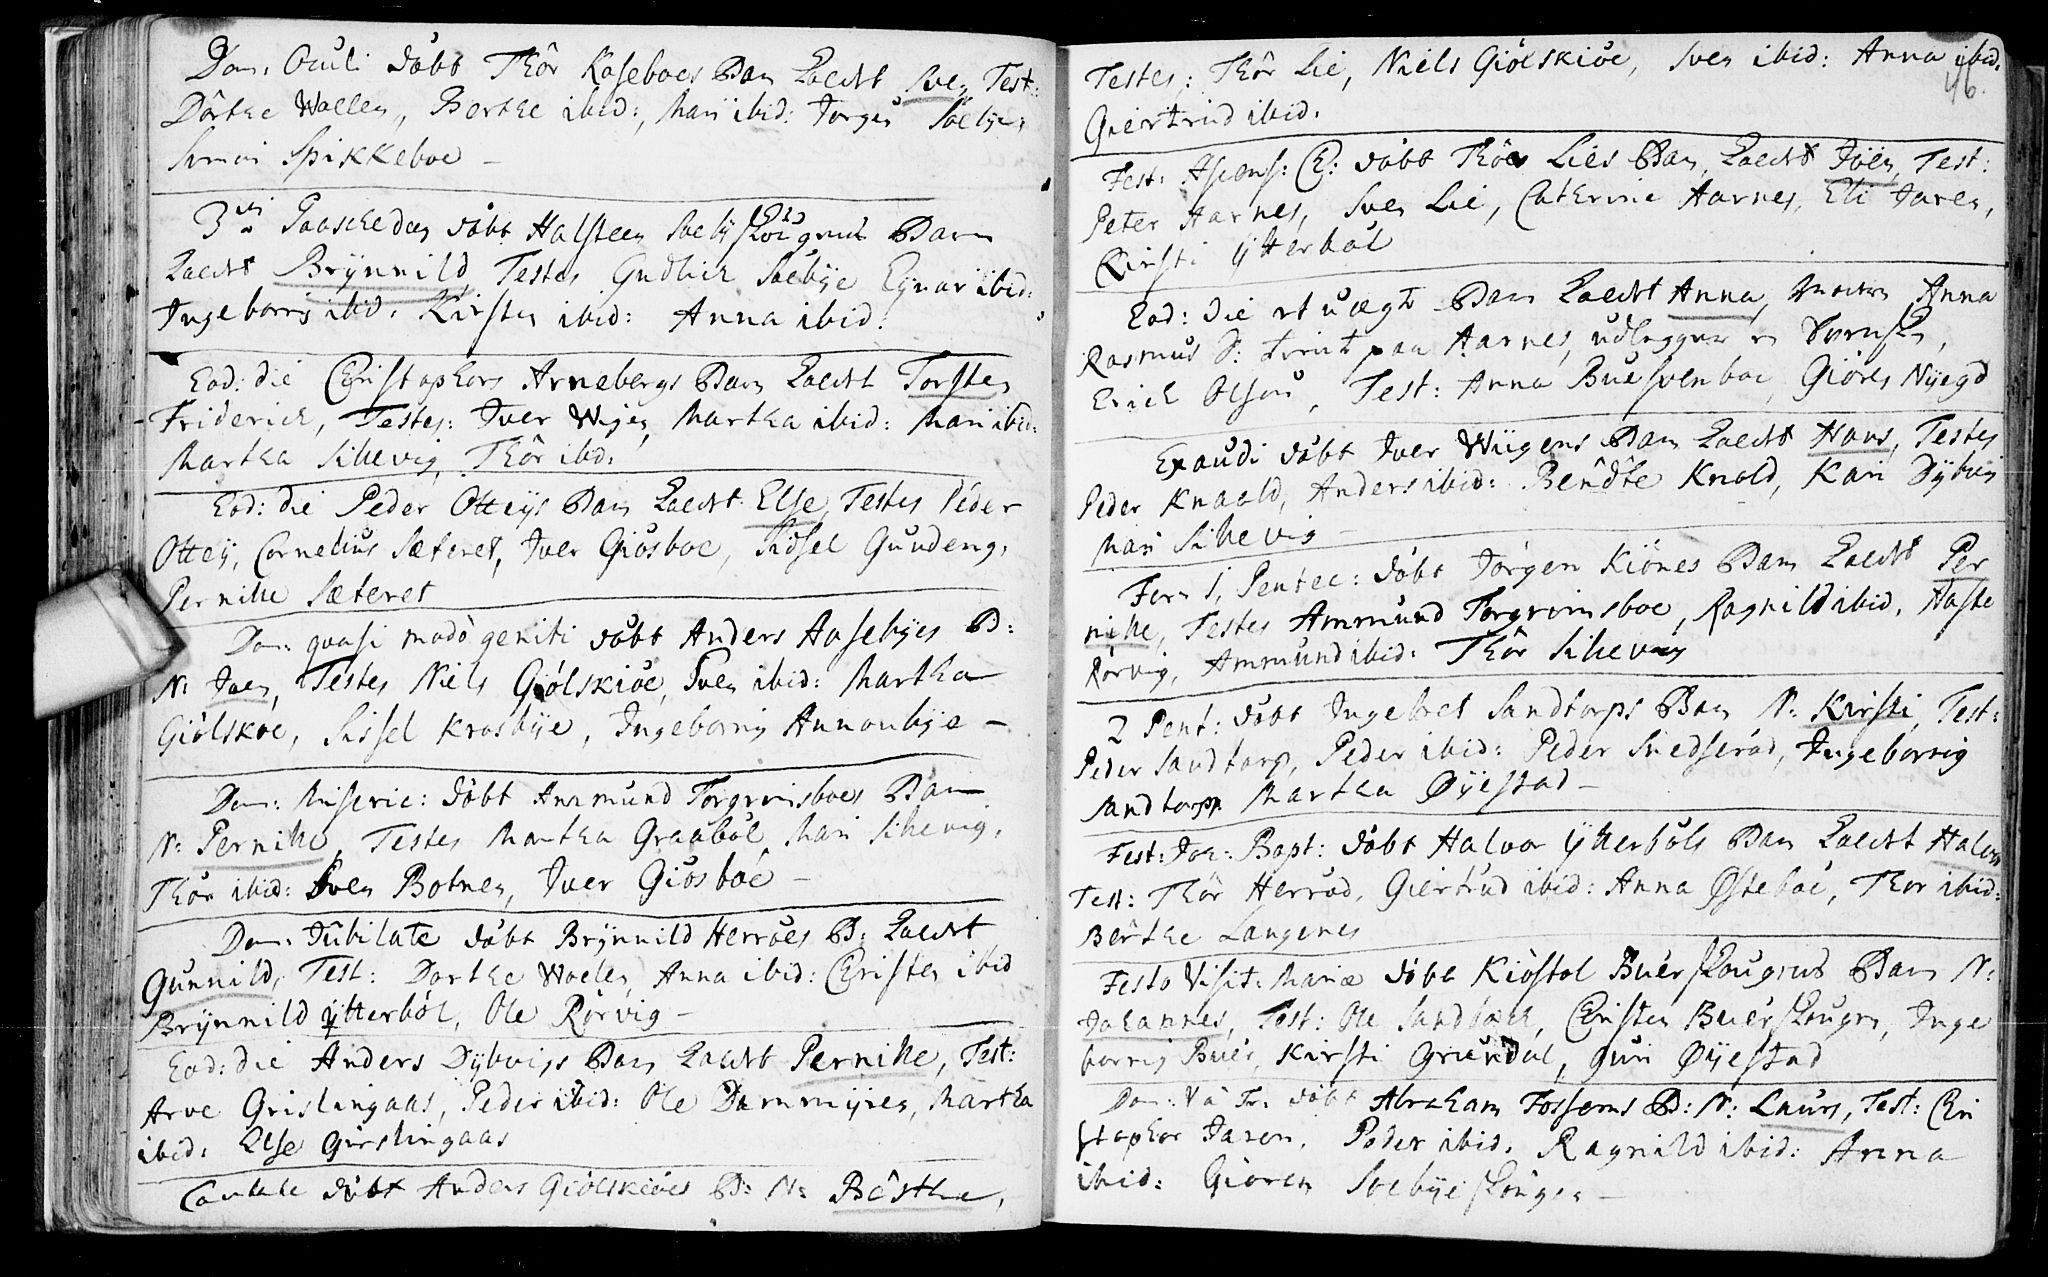 Dom: Oculi döbt Thôr Kaseboes Barn kaldt Sven, Test:
Dôrthe Wollen, Berthe ibid:, Mari ibid: Jorgen Soebye,
Simon Spikkeboe –
3die Paaschedag döbt Halsteen Soebÿskougens Barn
kaldt Brÿnnild Testes Gudlich Soebÿe Eÿnar ibid:
Ingeborrig ibid: Kirsten ibid: Anna ibid:
Eod: die Christophers Arnebergs Barn kaldt Torsten
Friderich, Testes: Iver Wiger, Martha ibid: Mari ibid:
Martha Sikevig, Thôr ibid:
Eod: die Peder Otteÿs Barn kaldt Else, Testes Peder
Otteÿ, Cornelius Sæteret, Iver Giösboe, Sidsel Gundeng,
Pernille Sæteret
Dom: quasi modo geniti döbt Anders Aasebÿes B:
N: Iver, Testes Niels Giólskiöe, Sven ibid: Martha
Giölskoe, Sissel Krosbÿe, Ingeborrig Annonbÿe –
Dom: Miseric: döbt Ammund Torgrimsboes Barn
N: Pernille, Testes Martha Graaböl, Mari Sikevig,
Thôr ibid: Sven Botnen, Iver Giösboe –
Dom: Jubilate döbt Brÿnnild Herröes B: kaldt
Gunnild, Test: Dorthe Wollen, Anna ibid: Christen ibid
Brÿnnild ÿtterböl, Ole Rörvig –
Eod: die Anders Dÿbvigs Barn kaldt Pernille, Test:
Arve Grislingaas, Peder ibid: Ole Dammÿren, Martha
ibid: Else Grislingaas
Cantate döbt Anders Giölskiöes B: N: Bêrthe,
Testes: Thôr Lie, Niels Giölskiöe, Sven ibid: Anna ibid.
46.
Giertrud ibid.
Fest: Ascens: C: döbt Thôrs Lies Barn kaldt Iver, Test:
Peter Aarnes, Sven Lie, Catherine Aarnes, Eli Jaren,
Kirsti ÿtterböl
Eod: die et uægte Barn kaldt Anna, Moder Anna
Rasmus D: tient paa Aarnes, udlegger en Svensk,
Erich Olson, Test: Anna Buesvenboe, Giören Nÿegd
Exaudi döbt Iver Wiigens Barn kaldt Hans, Testes
Peder Knaold, Anders ibid: Bendte Knold, Kari Dÿbvig
Mari Sikevig
Fer. 1, Pentec: döbt Jörgen Kiönes Barn kaldt Per
nille, Testes Ammund Torgrimsboe, Ragnild ibid, Aaste
Rörvig, Ammund ibid: Thôr Sikevig
2 Pent: döbt Ingebret Sandtorps Barn N: Kirsti, Test:
Peder Sandtorp, Peder ibid: Peder Smedseröd, Ingeborrig
Sandtorp, Martha Øÿestad –
Fest: Joh: Bapt: döbt Halvor ÿtterböls Barn kaldt Halvor
Test: Thôr Herröd, Giertrud ibid: Anna Østeboe, Thor ibid:
Bêrthe Langenes
Festo Visit: Mariæ döbt Kiöstol Buerskougens Barn N:
Johannes, Test: Ole Sandbæck, Christen Buerskougen, Inge
borrig Buer, Kirsti Grundal, Guri Øÿestad
Dom: V à Tr: döbt Abraham Fossems B: N: Laurs, Test: Chri
stopher Jaren, Peder ibid, Ragnild ibid: Anna
ibid: Giören Soebÿeskougen –